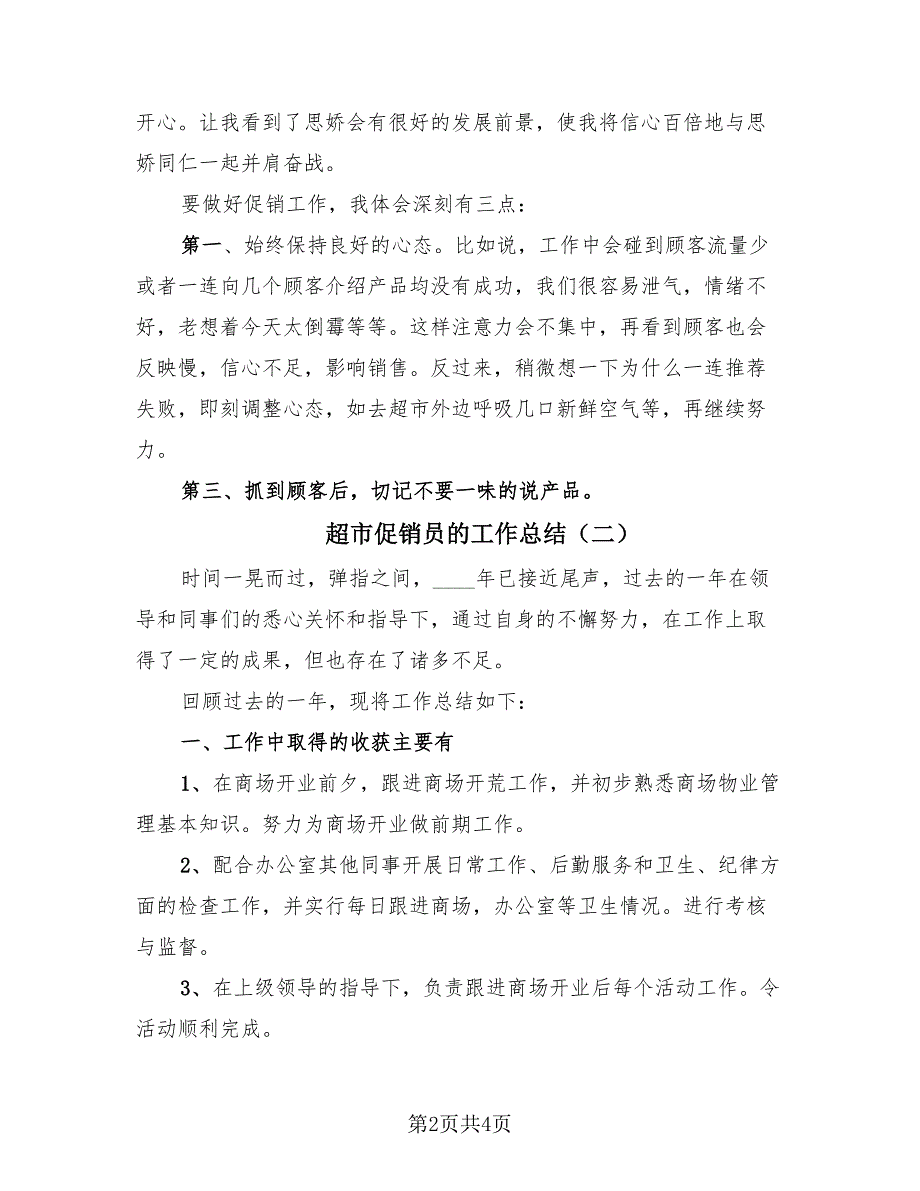 开心。让我看到了思娇会有很好的发展前景，使我将信心百倍地与思
娇同仁一起并肩奋战。
要做好促销工作，我体会深刻有三点：
第一、始终保持良好的心态。比如说，工作中会碰到顾客流量少
或者一连向几个顾客介绍产品均没有成功，我们很容易泄气，情绪不
好，老想着今天太倒霉等等。这样注意力会不集中，再看到顾客也会
反映慢，信心不足，影响销售。反过来，稍微想一下为什么一连推荐
失败，即刻调整心态，如去超市外边呼吸几口新鲜空气等，再继续努
力。
第三、抓到顾客后，切记不要一味的说产品。
超市促销员的工作总结（二）
时间一晃而过，弹指之间，____年已接近尾声，过去的一年在领
导和同事们的悉心关怀和指导下，通过自身的不懈努力，在工作上取
得了一定的成果，但也存在了诸多不足。
回顾过去的一年，现将工作总结如下：
一、工作中取得的收获主要有
1、在商场开业前夕，跟进商场开荒工作，并初步熟悉商场物业管
理基本知识。努力为商场开业做前期工作。
2、配合办公室其他同事开展日常工作、后勤服务和卫生、纪律方
面的检查工作，并实行每日跟进商场，办公室等卫生情况。进行考核
与监督。
3、在上级领导的指导下，负责跟进商场开业后每个活动工作。令
活动顺利完成。
第2页共4页